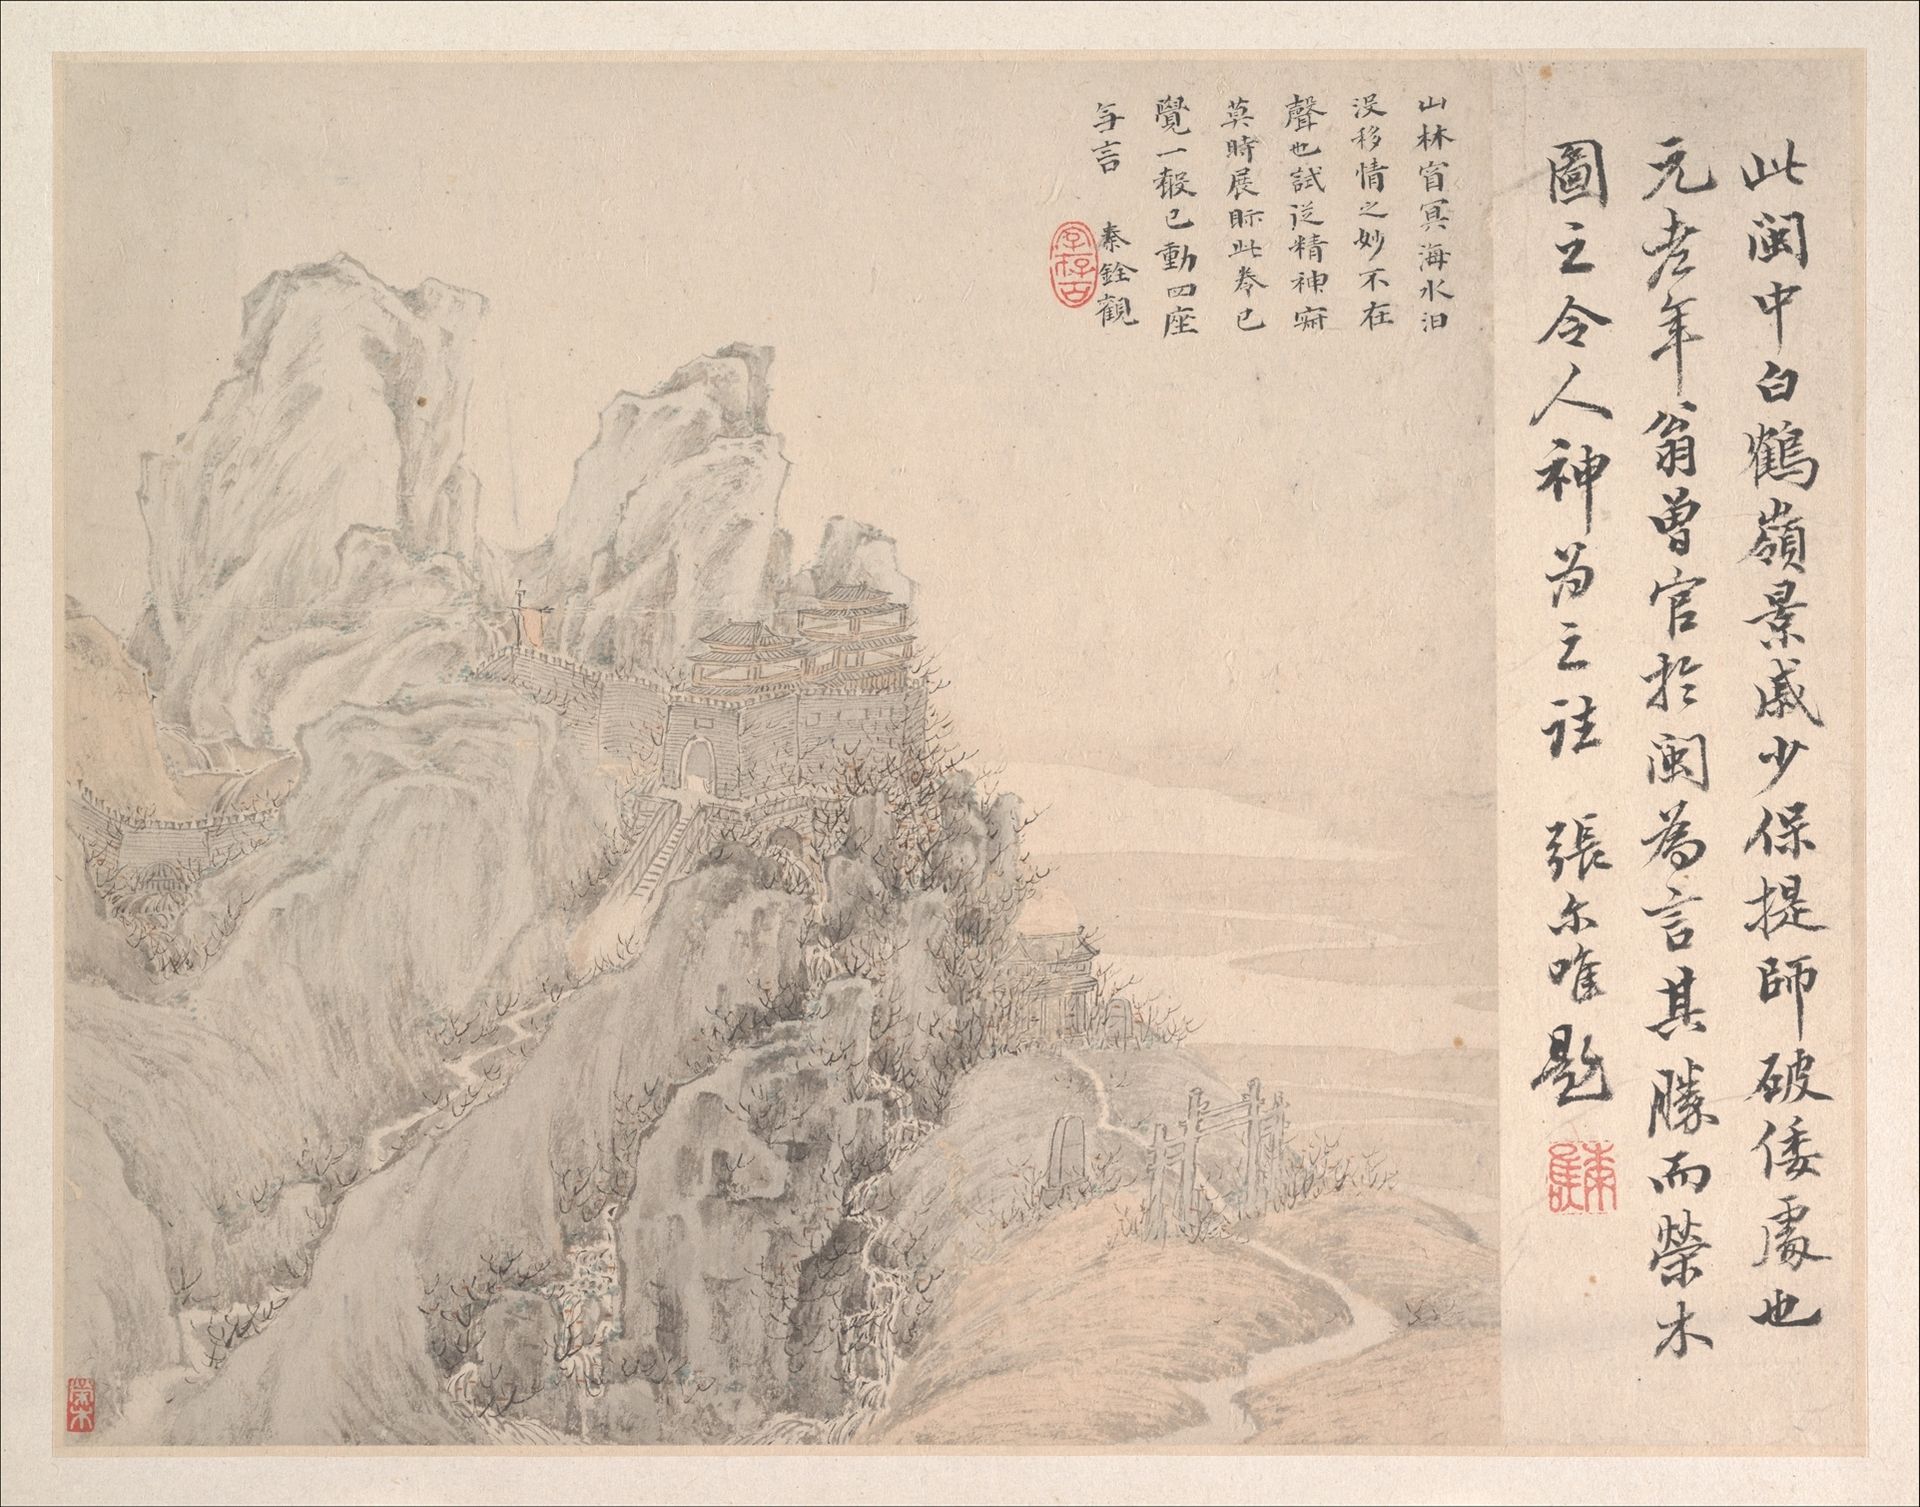 此閩中白鶴嶺景戚少保提師破倭處也
元老年翁曾官於閩為言其勝而榮木
圖之令人神為之往　張尔唯題
山林窅冥海水汩
没移情之妙不在
聲也試從精神寂
莫時展眎此卷已
覺一報已動四座
与言　秦銓觀
榮木